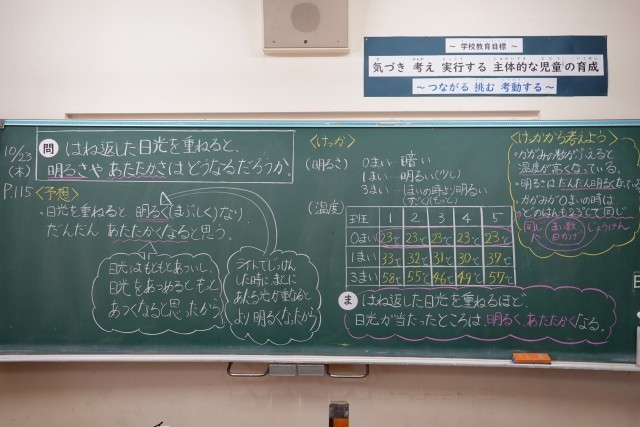 ～ 学校教育目標 ～
気づき 考え 実行する 主体的な児童の育成
～ つながる 挑む 考動する ～
10/23
(木)
P.115
問 はね返した日光を重ねると、
明るさや あたたかさは どうなるだろうか。
〈予想〉
・日光を重ねると 明るく(まぶしく)なり、
だんだん あたたかくなると思う。
日光はもともとあついし、
日光をあつめると もっと
あつくなると思ったから
ライトでじっけん
した時に、まとに
あたる光が重なると
より明るくなったから
〈けっか〉
(明るさ) 0まい… 暗い
1まい… 明るい(少し)
3まい… 1まいの時より明るい
(ずっと)(もっと)
(温度)
班 1 2 3 4 5
0まい 23℃ 23℃ 23℃ 23℃ 23℃
1まい 33℃ 32℃ 31℃ 30℃ 37℃
3まい 58℃ 55℃ 46℃ 49℃ 57℃
ま はね返した日光を重ねるほど、
日光が当たったところは 明るく、あたたかくなる。
〈けっかから考えよう〉
・かがみの数がふえると
温度が高くなっている。
・明るさはだんだん明るく
・かがみが0まいの時は
どのはんも23℃で同じ
同じ
まい数
日かげ
じょうけん